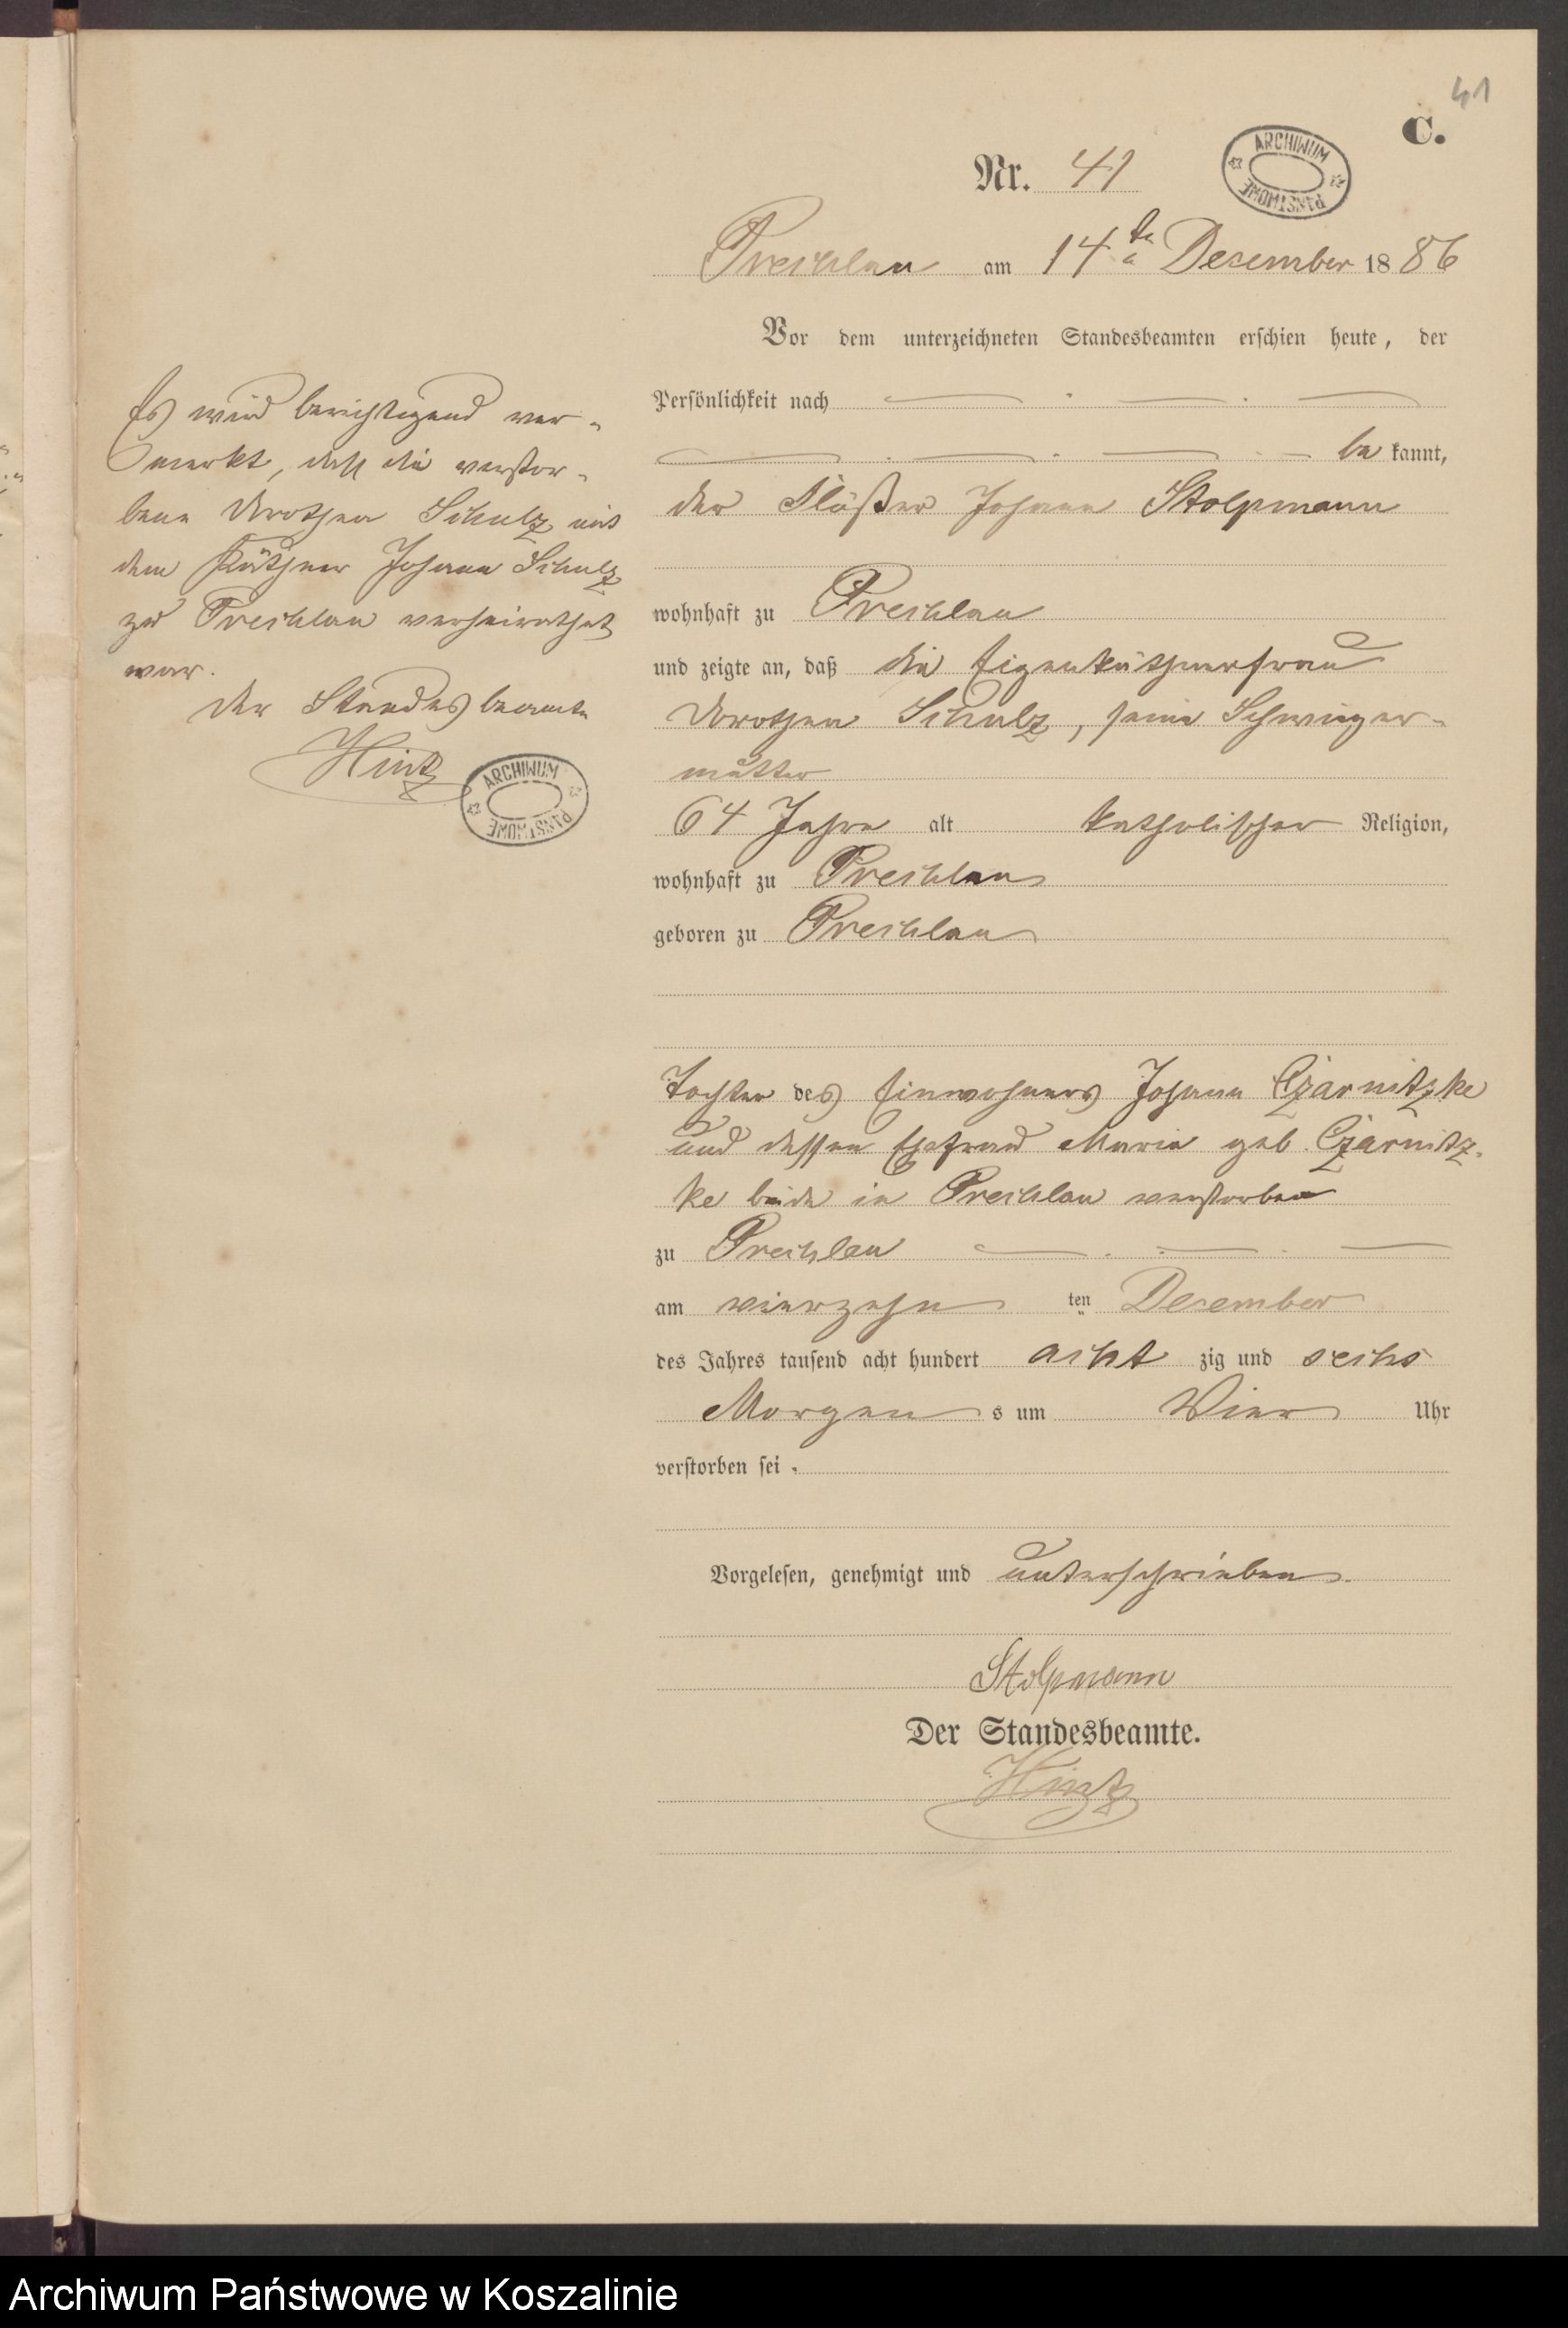 41
C.
Nr. 41
ARCHIWUM PAŃSTWOWE
Prechlau am 14ten Dezember 1886
Vor dem unterzeichneten Standesbeamten erschien heute, der
Persönlichkeit nach
be kannt,
der Flößer Johann Stolpmann
wohnhaft zu Prechlau
und zeigte an, daß die Eigenkäthnerfrau
Dorothea Schulz, seine Schwieger-
mutter
64 Jahre alt katholischer Religion,
wohnhaft zu Prechlau
geboren zu Prechlau
Tochter des Einwohners Johann Czarnitzke
und dessen Ehefrau Maria geb. Czarnitz-
ke beide in Prechlau verstorben
zu Prechlau
am vierzehn ten Dezember
des Jahres tausend acht hundert acht zig und sechs
Morgen s um Vier Uhr
verstorben sei.
Vorgelesen, genehmigt und unterschrieben.
Stolpmann
Der Standesbeamte.
Hintz
Es wird berichtigend ver-
merkt, daß die verstor-
bene Dorothea Schulz mit
dem Käthner Johann Schulz
zu Prechlau verheirathet
war.
Der Standesbeamte
Hintz
ARCHIWUM PAŃSTWOWE
Archiwum Państwowe w Koszalinie